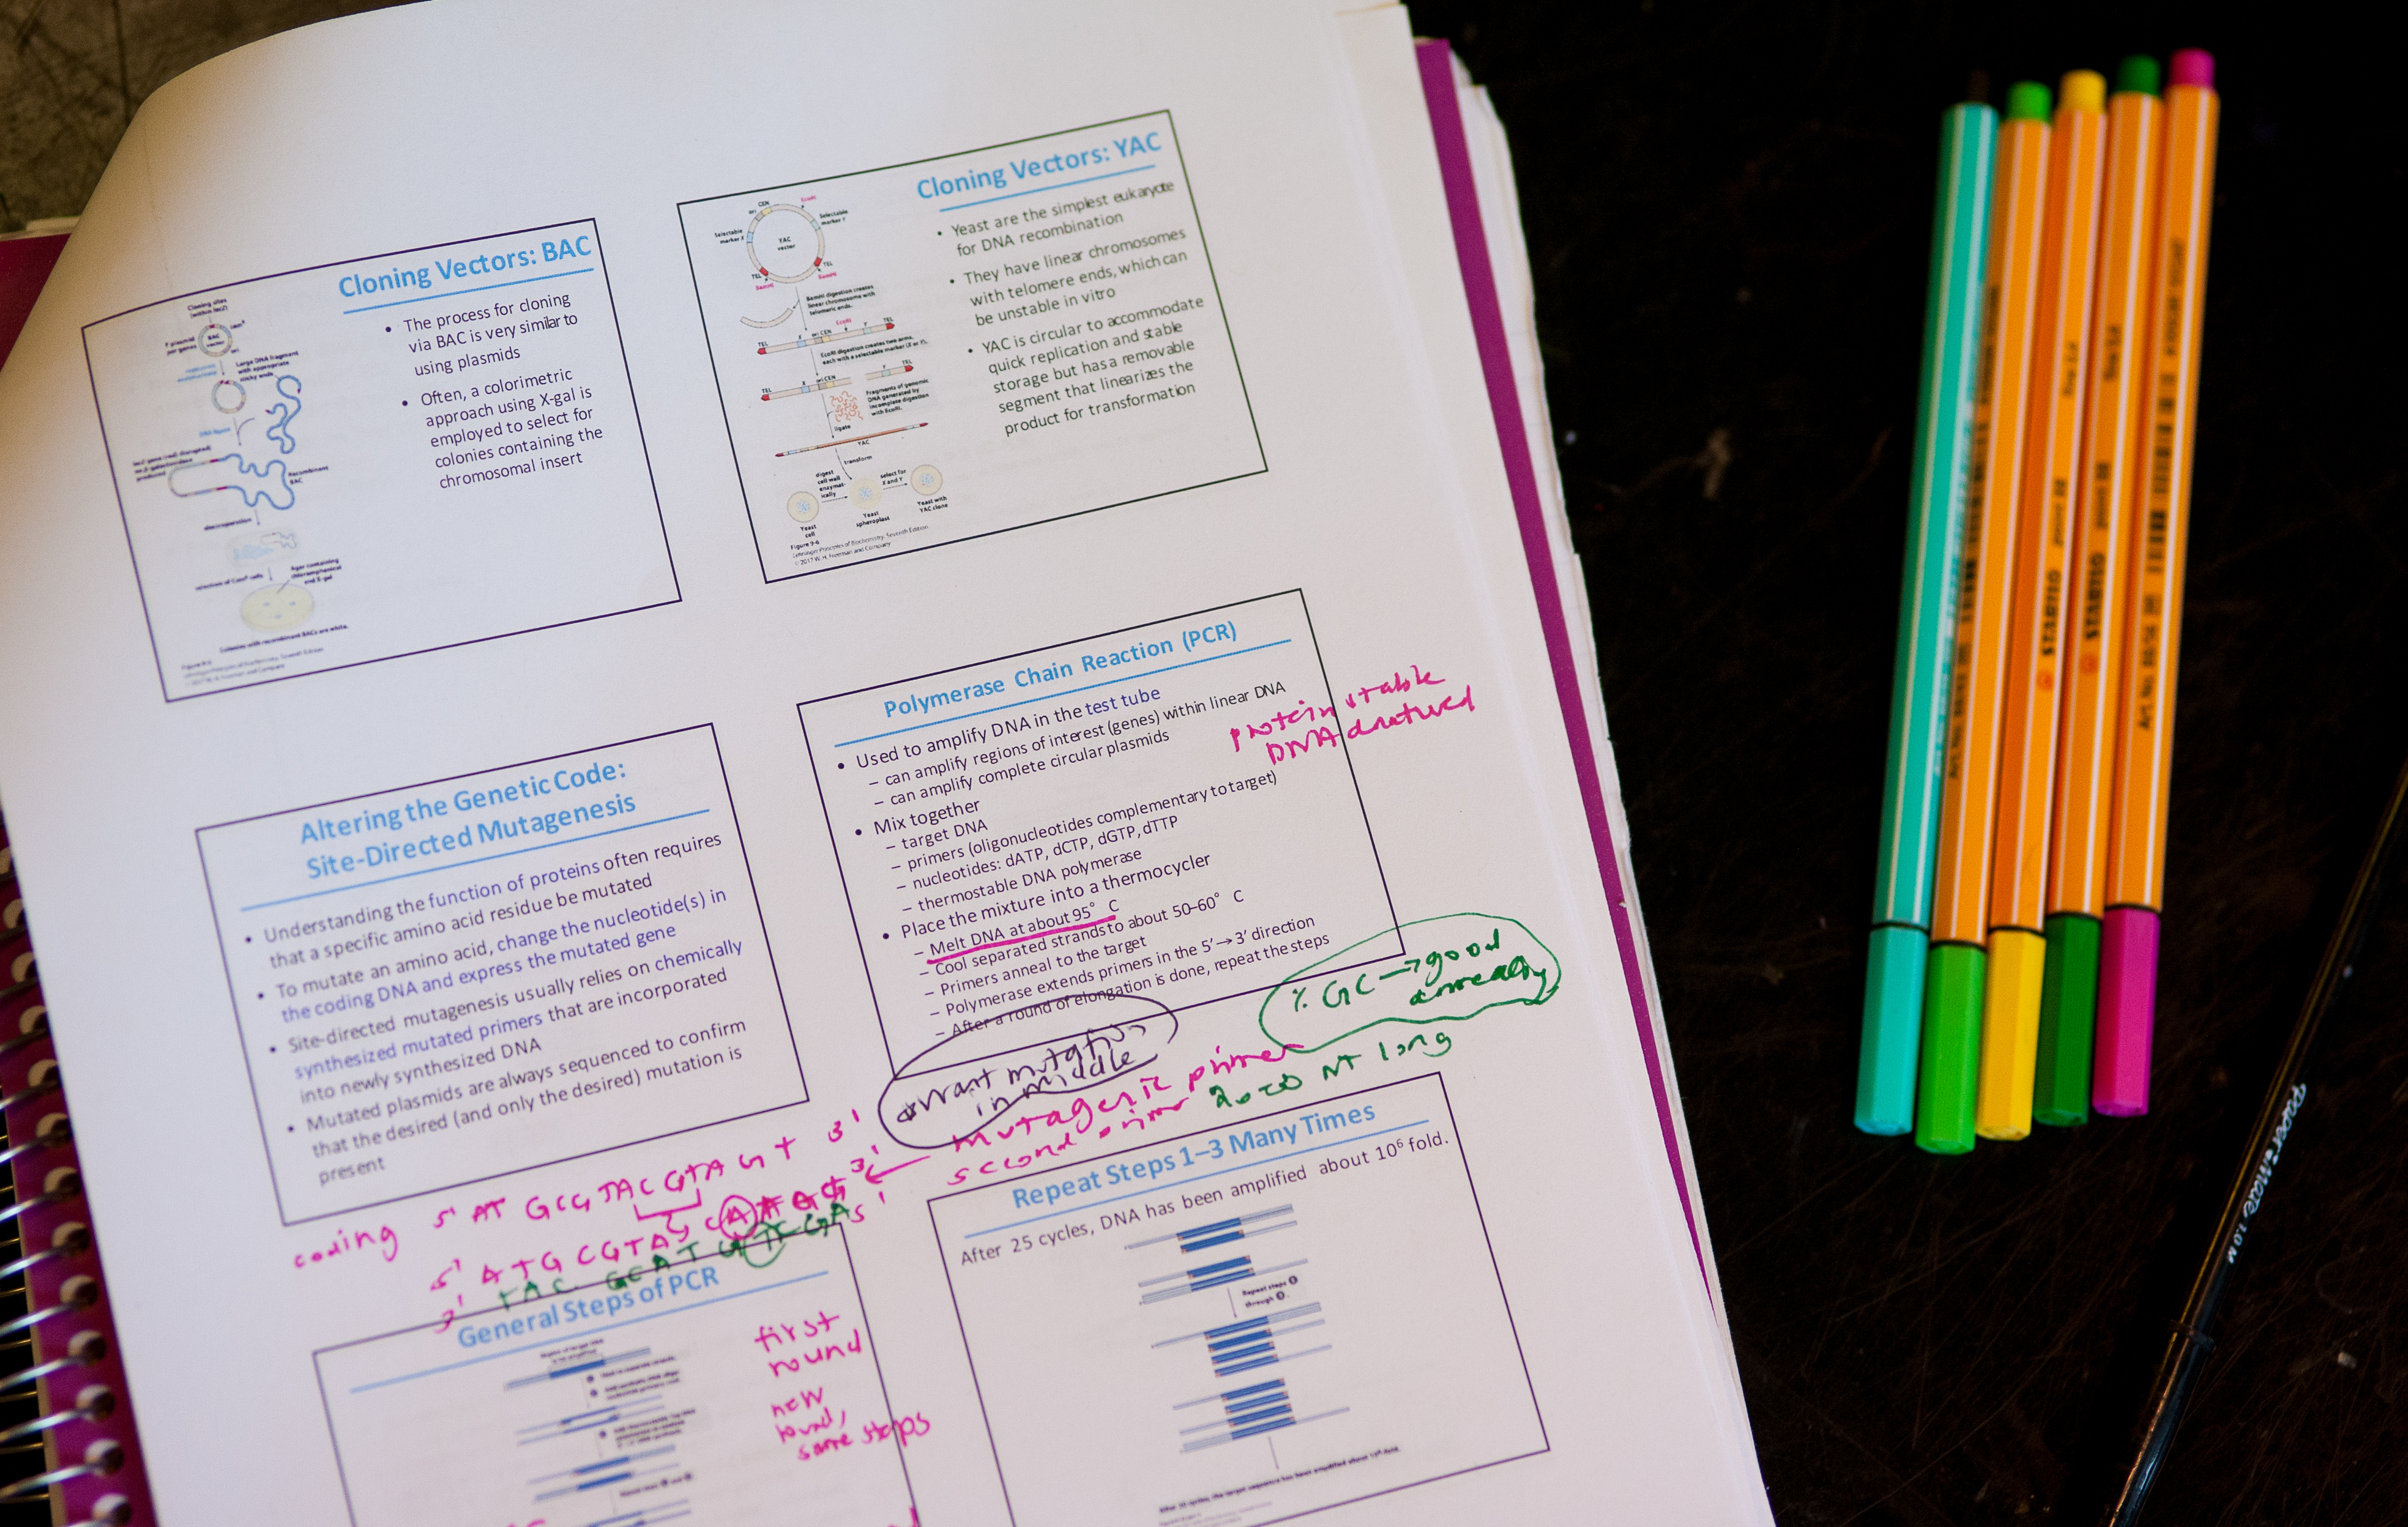 Cloning Vectors: BAC
Cloning sites
BAC
vector
Large DNA fragment
with appropriate
sticky ends
Recombinant
BAC
electroporation
Agar containing
chloramphenicol
and X-gal
Colonies with recombinant BACs are white.
• The process for cloning
via BAC is very similar to
using plasmids
• Often, a colorimetric
approach using X-gal is
employed to select for
colonies containing the
chromosomal insert
Cloning Vectors: YAC
CEN
ori
EcoRI
Selectable
marker X
Selectable
marker Y
YAC
vector
TEL
TEL
BamHI
BamHI
BamHI digestion creates
linear chromosome with
telomeric ends.
EcoRI
TEL
X
ori CEN
Y
TEL
EcoRI digestion creates two arms,
each with a selectable marker (X or Y).
TEL
X
ori CEN
Y
TEL
Fragments of genomic
DNA generated by
incomplete digestion
with EcoRI.
ligate
YAC
transform
digest
cell wall
enzymat-
ically
select for
X and Y
Yeast
cell
Yeast
spheroplast
Yeast with
YAC clone
Figure 9-6
Lehninger Principles of Biochemistry, Seventh Edition
© 2017 W. H. Freeman and Company
• Yeast are the simplest eukaryote
for DNA recombination
• They have linear chromosomes
with telomere ends, which can
be unstable in vitro
• YAC is circular to accommodate
quick replication and stable
storage but has a removable
segment that linearizes the
product for transformation
Altering the Genetic Code:
Site-Directed Mutagenesis
• Understanding the function of proteins often requires
that a specific amino acid residue be mutated
• To mutate an amino acid, change the nucleotide(s) in
the coding DNA and express the mutated gene
• Site-directed mutagenesis usually relies on chemically
synthesized mutated primers that are incorporated
into newly synthesized DNA
• Mutated plasmids are always sequenced to confirm
that the desired (and only the desired) mutation is
present
Polymerase Chain Reaction (PCR)
• Used to amplify DNA in the test tube
– can amplify regions of interest (genes) within linear DNA
– can amplify complete circular plasmids
• Mix together
– target DNA
– primers (oligonucleotides complementary to target)
– nucleotides: dATP, dCTP, dGTP, dTTP
– thermostable DNA polymerase
• Place the mixture into a thermocycler
– Melt DNA at about 95° C
– Cool separated strands to about 50–60° C
– Primers anneal to the target
– Polymerase extends primers in the 5′→3′ direction
– After a round of elongation is done, repeat the steps
protein stable
DNA denatured
% GC → good
annealing
want mutation
in middle
mutagenic primer
second primer
NT long
coding 5' AT GCG TAC GTA GT 3'
5' ATG CGTA
3' TAC GCAT
General Steps of PCR
first
round
new
round,
same steps
Repeat Steps 1–3 Many Times
After 25 cycles, DNA has been amplified about 10⁶ fold.
Repeat steps 1
through 3.
After 25 cycles, the target sequence has been amplified about 10⁶ fold.
STABILO point 88
STABILO point 88
papermate 1.0 M